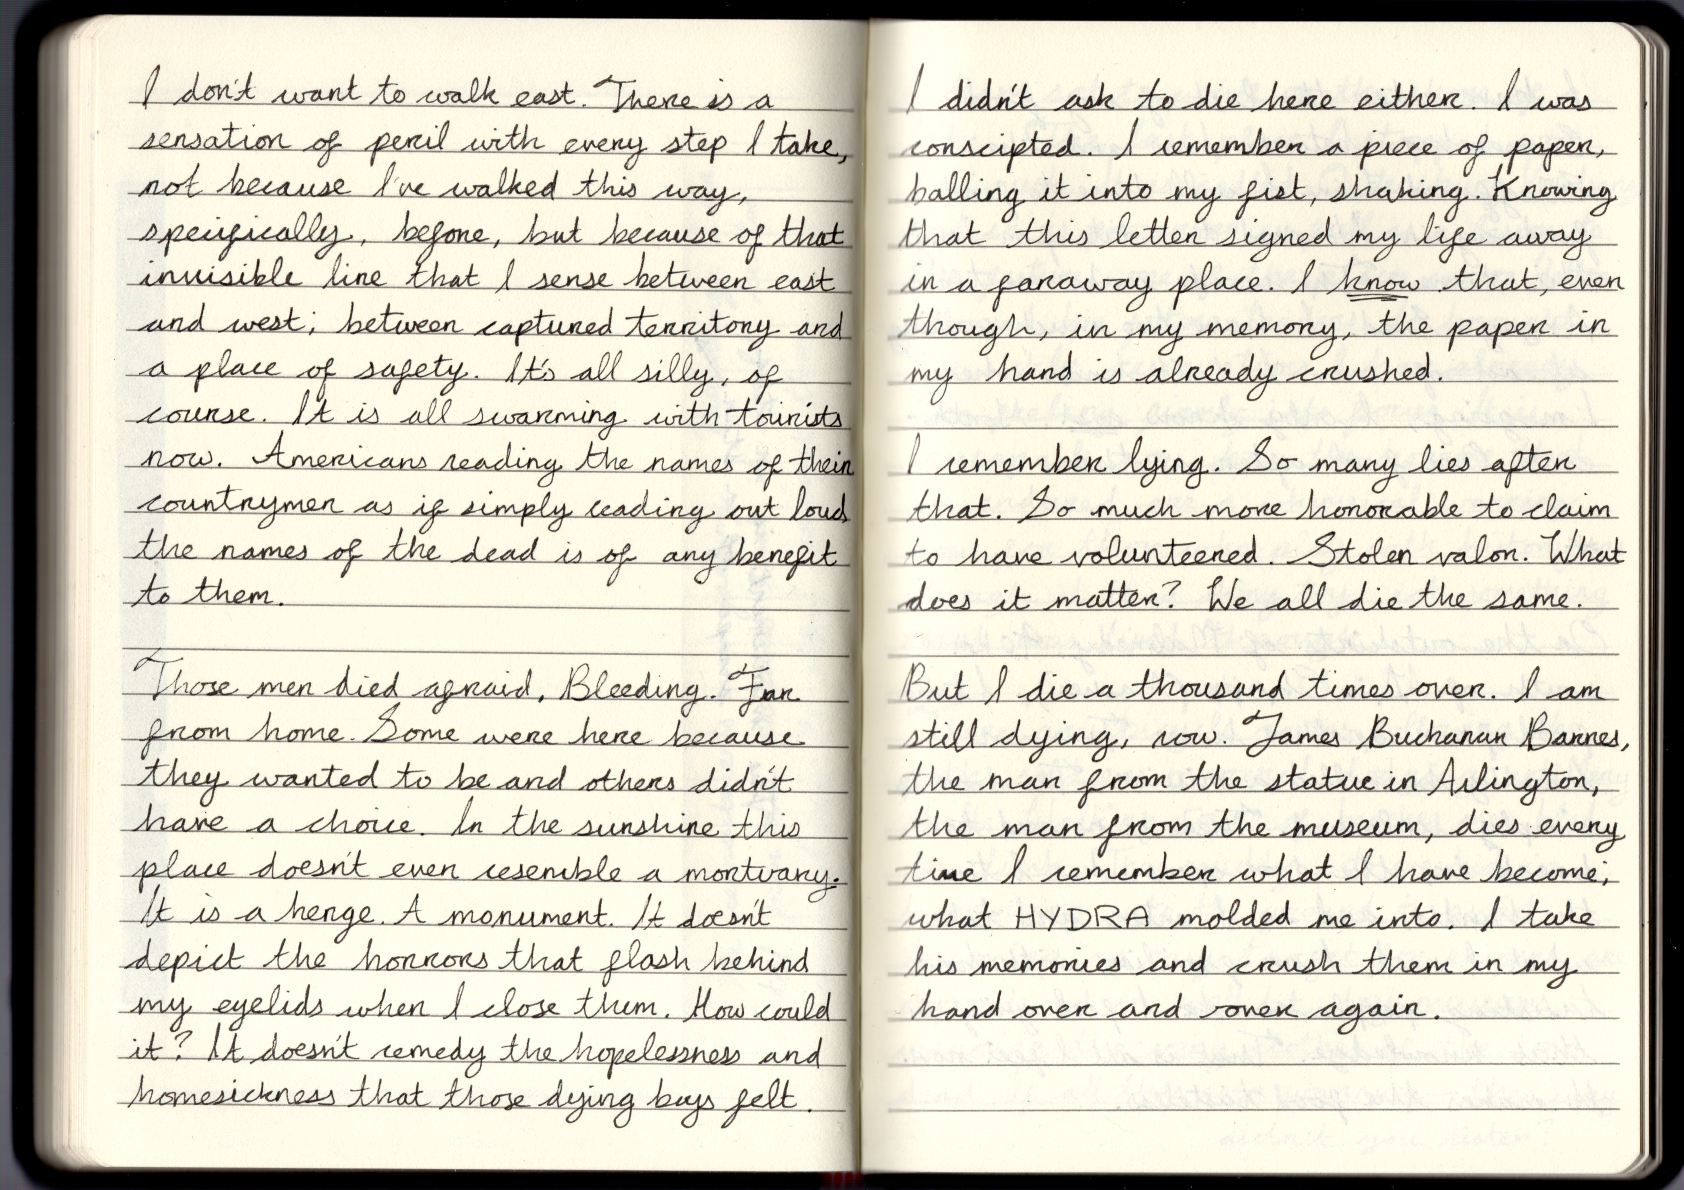 I don't want to walk east. There is a
sensation of peril with every step I take,
not because I've walked this way,
specifically, before, but because of that
invisible line that I sense between east
and west; between captured territory and
a place of safety. It's all silly, of
course. It is all swarming with tourists
now. Americans reading the names of their
countrymen as if simply reading out loud
the names of the dead is of any benefit
to them.
Those men died afraid, Bleeding. Far
from home. Some were here because
they wanted to be and others didn't
have a choice. In the sunshine this
place doesn't even resemble a mortuary.
It is a henge. A monument. It doesn't
depict the horrors that flash behind
my eyelids when I close them. How could
it? It doesn't remedy the hopelessness and
homesickness that those dying boys felt.
I didn't ask to die here either. I was
conscipted. I remember a piece of paper,
balling it into my fist, shaking. Knowing
that this letter signed my life away
in a faraway place. I know that, even
though, in my memory, the paper in
my hand is already crushed.
I remember lying. So many lies after
that. So much more honorable to claim
to have volunteered. Stolen valor. What
does it matter? We all die the same.
But I die a thousand times over. I am
still dying, now. James Buchanan Barnes,
the man from the statue in Arlington,
the man from the museum, dies every
time I remember what I have become;
what HYDRA molded me into. I take
his memories and crush them in my
hand over and over again.